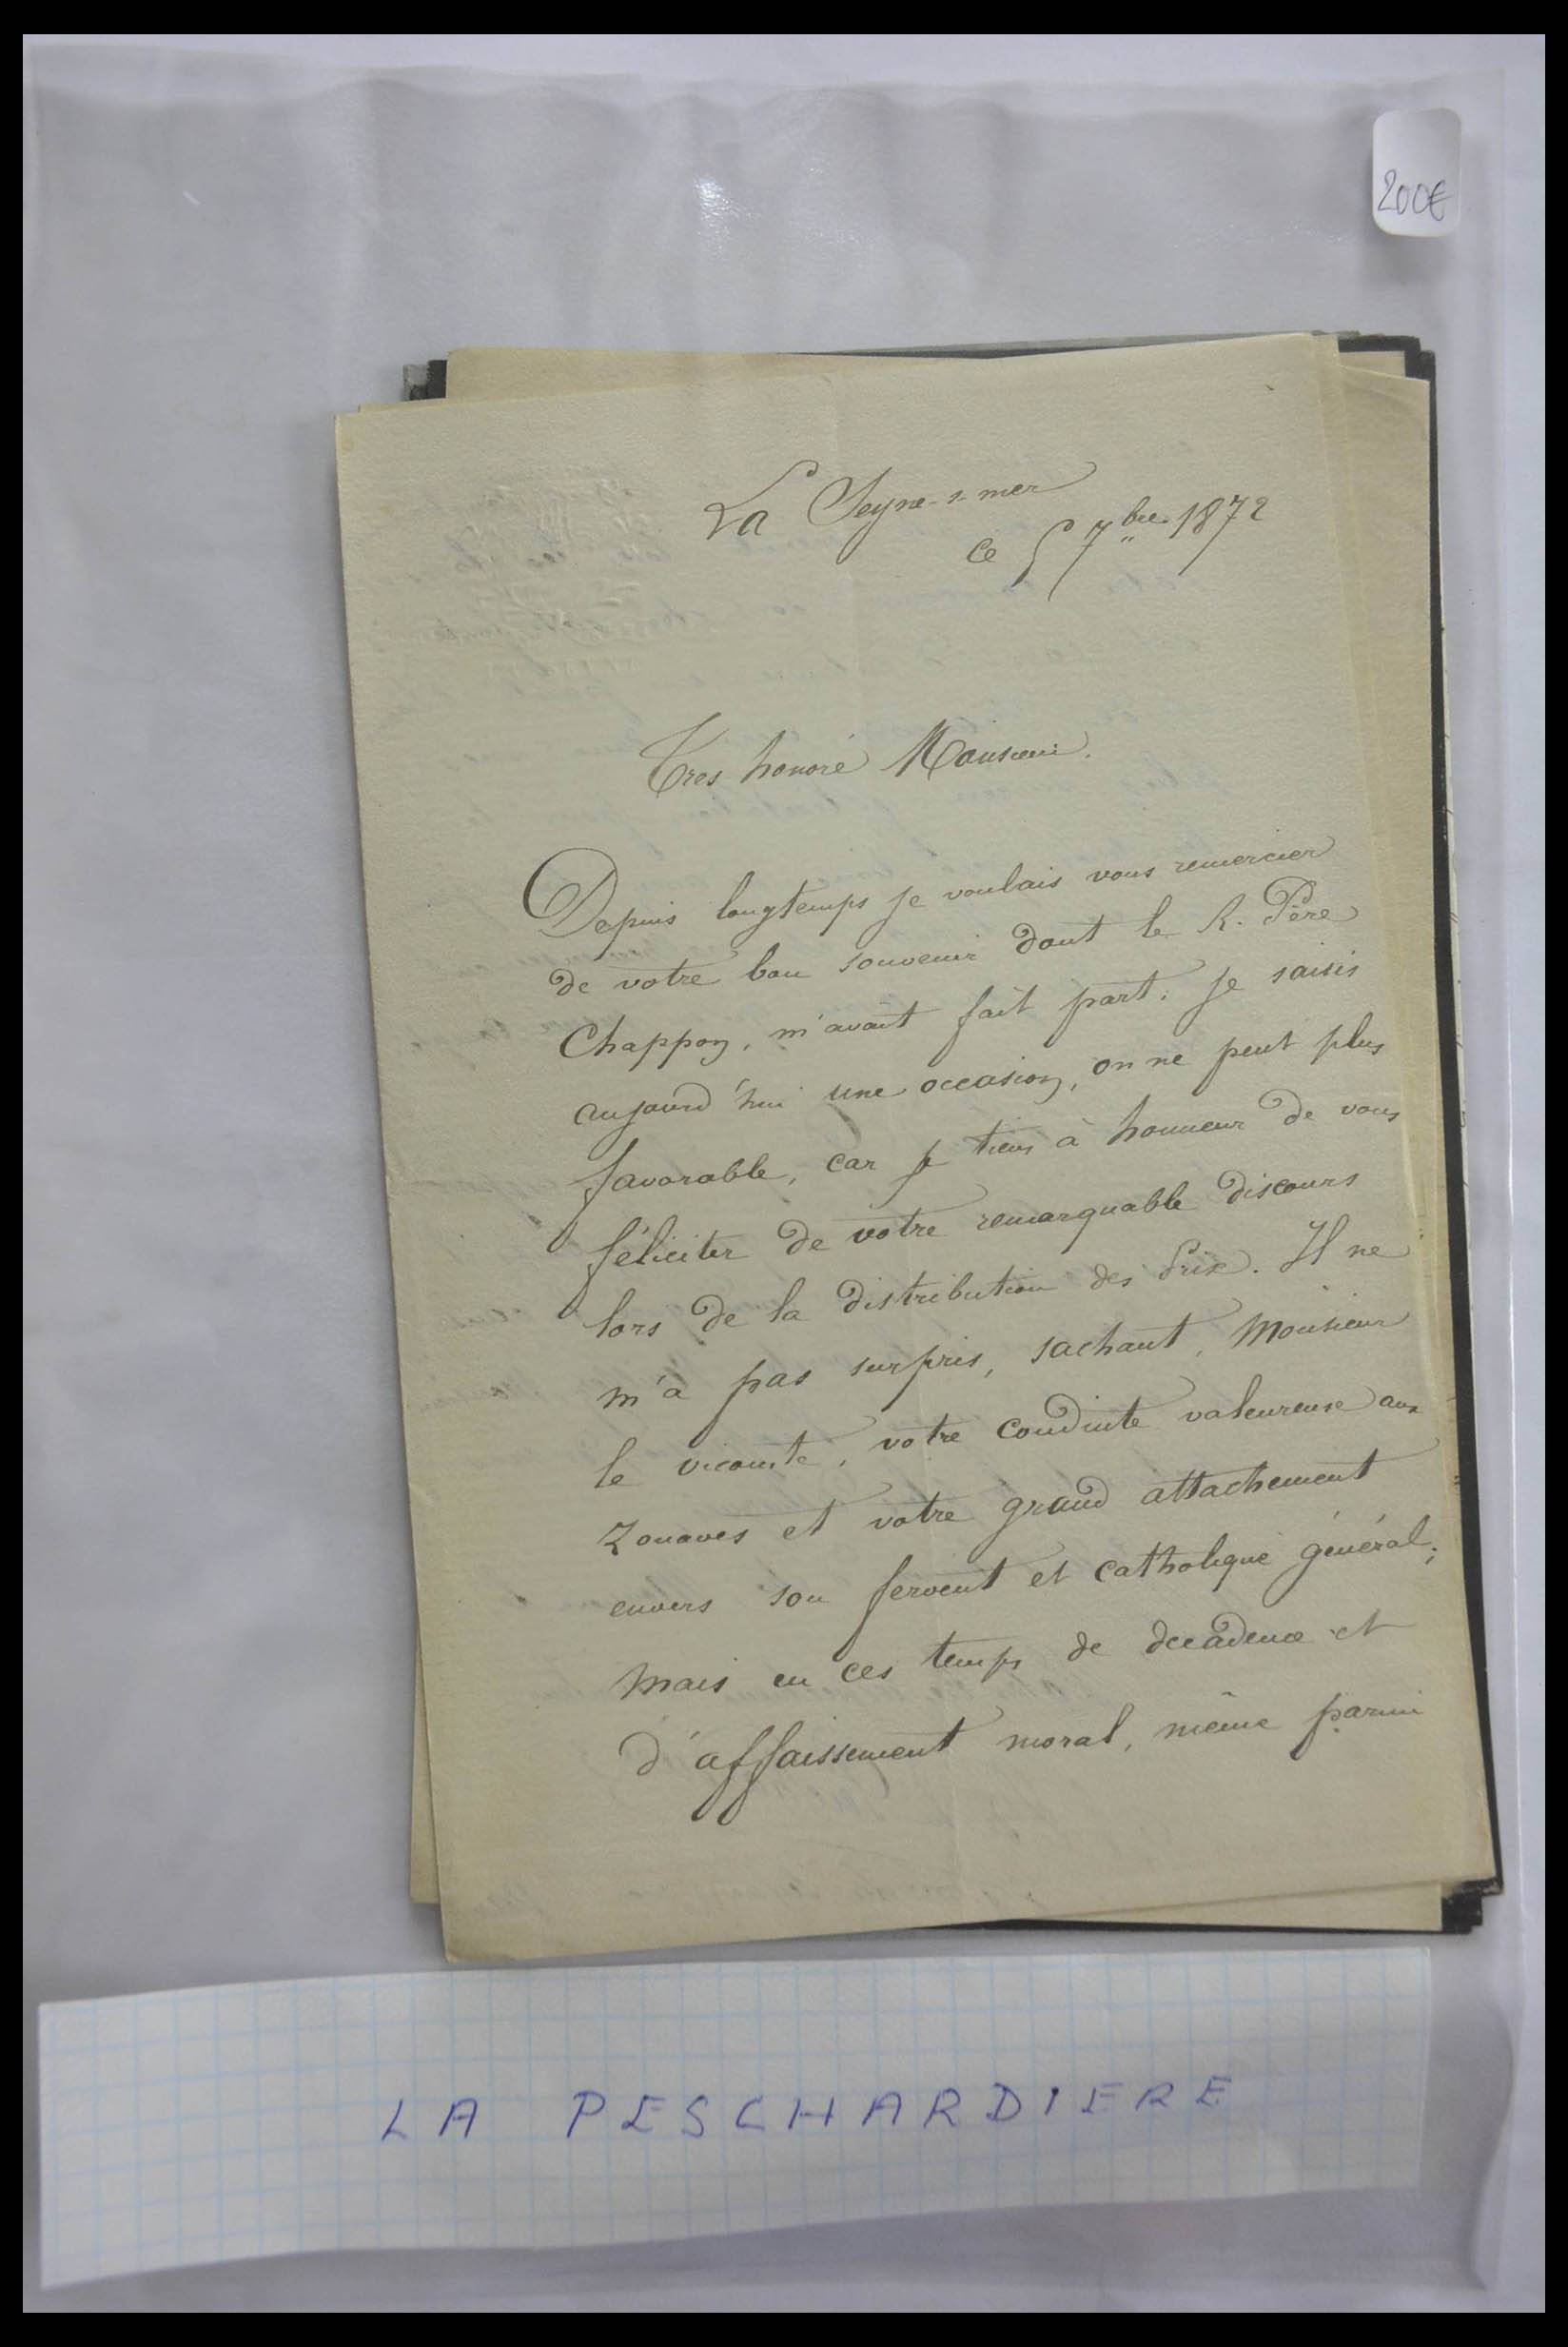 200€
La Seyne-s-mer
ce 5 7bre 1872
Tres honoré Monsieur.
Depuis longtemps je voulais vous remercier
de votre bon souvenir dont le R. Père
Chappon, m'avait fait part. Je saisis
aujourd'hui une occasion, on ne peut plus
favorable, car je tiens à honneur de vous
féliciter de votre remarquable discours
lors de la distribution des Prix. Il ne
m'a pas surpris, sachant, Monsieur
le vicomte, votre conduite valeureuse aux
zouaves et votre grand attachement
envers son fervent et catholique général;
mais en ces temps de décadence et
d'affaissement moral, même parmi
LA PESCHARDIERE